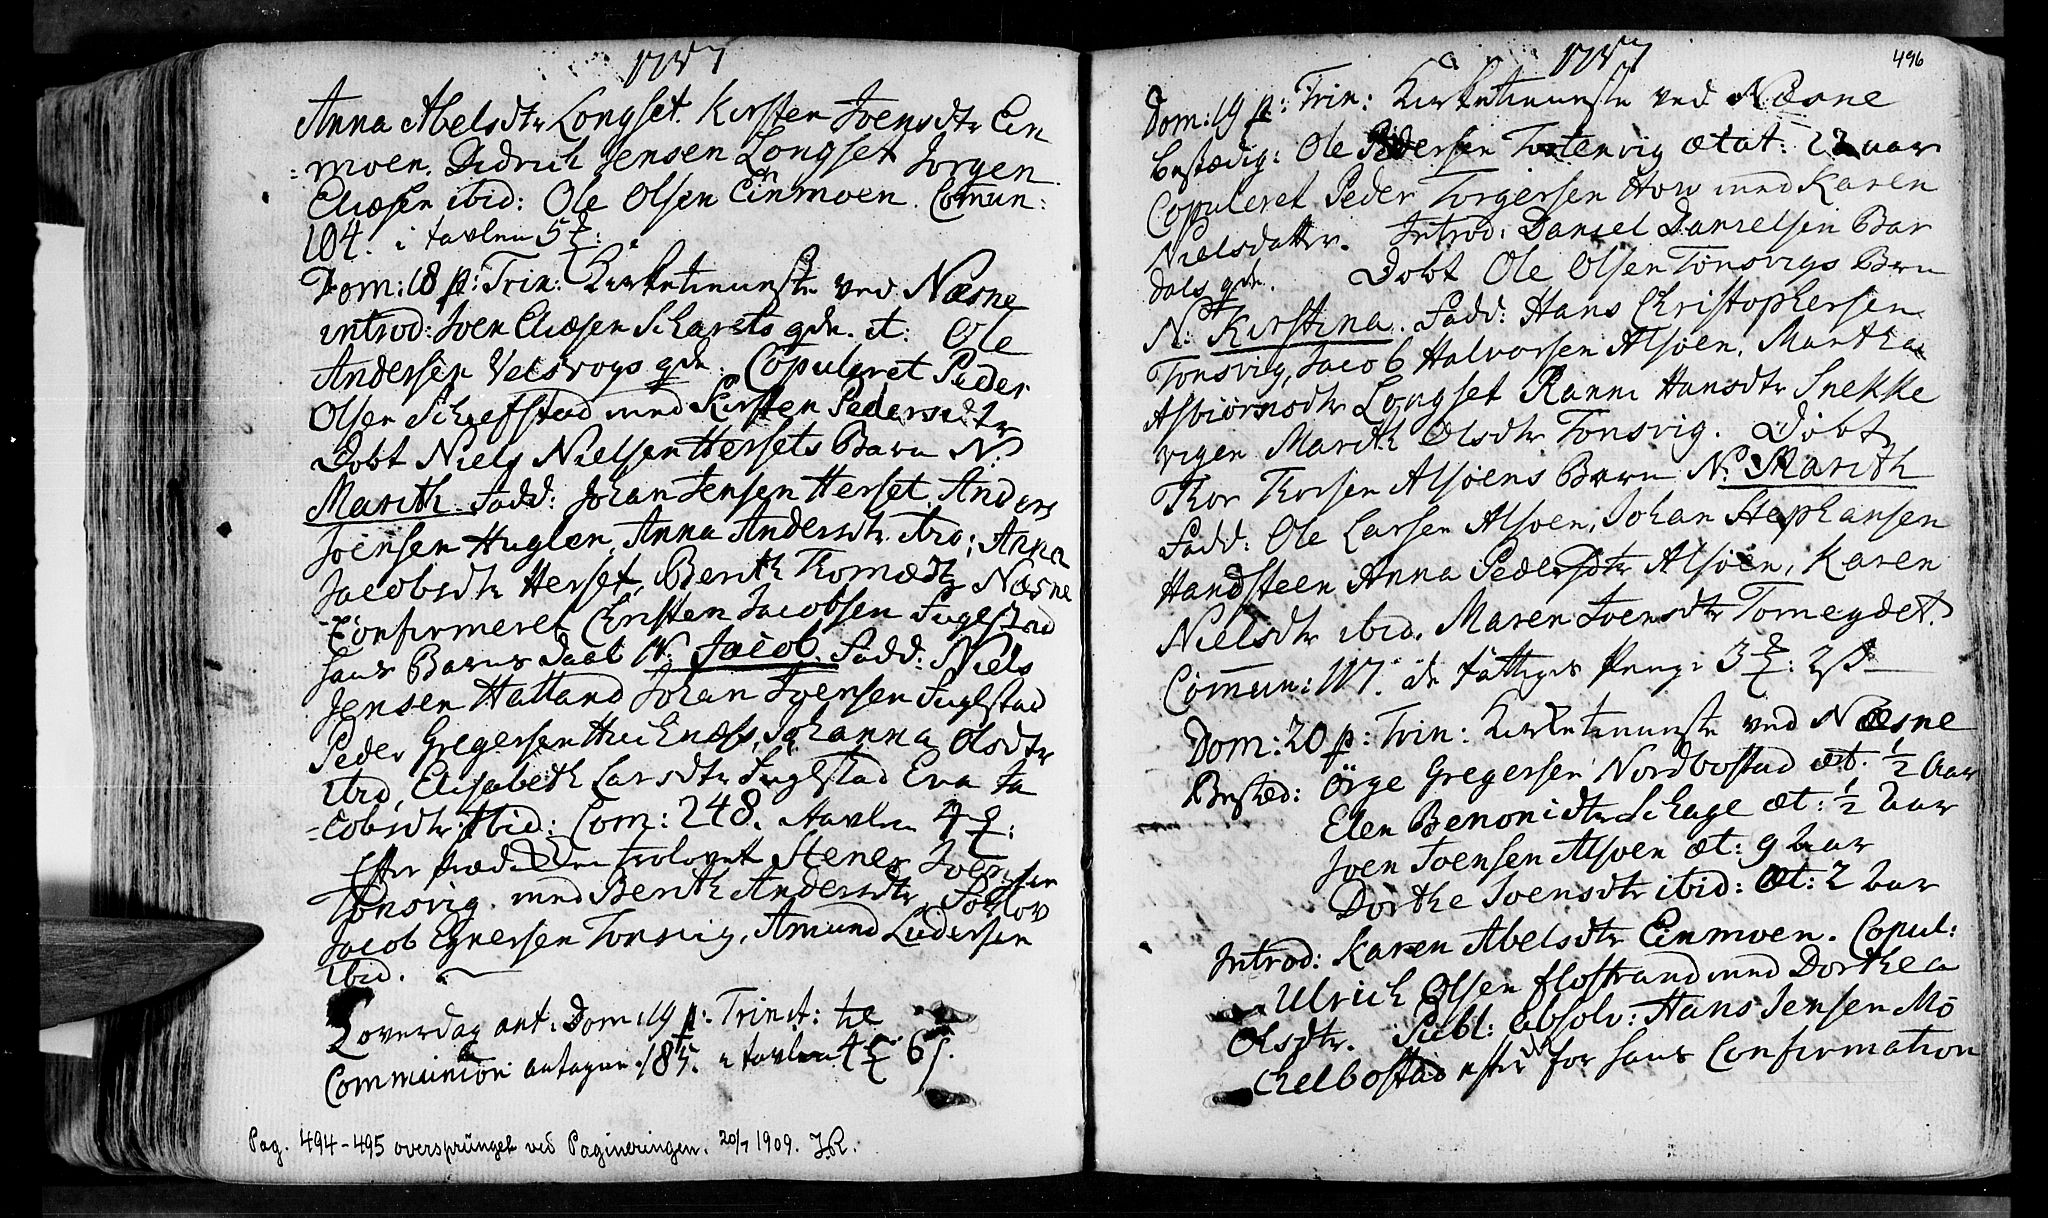 1757
Anna Abelsdtr Longset. Kirsten Joensdtr Ein
=moen. Didrich Jensen Longset Jørgen
Eliæsen ibid: Ole Olsen Einmoen. Com̄un:
104. i tavlen
Dom: 18 p: Trin: Kirketieneste ved Næsne
introd: Joen Eliæsen Scharets qde. it: Ole
Andersen qde. Copuleret Peder
Olsen med Kirsten Pedersdtr
Døbt Niels Nielsen Hersets Barn N.
Marith. Fadd: Johan Jensen Herset, Anders
Joensen Huglen, Anna Andersdtr ibid; Anna
Jacobsdtr Herset, Berith Thomædtr Næsne
Confirmeret Christen Jacobsen Fuglstad
hans Barns Daab N. Jacob. Fadd: Niels
Jensen Hatland Johan Joensen Fuglstad
Peder Gregersen Johanna Olsdtr
ibid, Elisabeth Larsdtr Fuglstad Eva Ja
=cobsdtr ibid: Com: 248. i tavlen
Efter trolovet Stener Joensen
Tonsvig. med Berith Andersdtr, Forlov
Jacob Tonsvig, Amund Ludersen
ibid.
Loverdag ant. Dom: 19 p: Trinit: til
Communion antagen 185. i tavlen
Pag. 494-495 oversprunget ved Pagineringen. 20/7 1909. J.R.
1757
496
Dom: 19 p: Trin: Kirketieneste ved Næsne
bestædig: Ole Pedersen Tostenvig ætat: 22 aar
Copuleret Peder Torgersen How med Karen
Nielsdatter. Introd: Daniel Danielsen Bar
dals qde. Døbt Ole Olsen Tonsvigs Barn
N: Kirstina. Fadd: Hans Christophersen
Tonsvig, Jacob Halvorsen Alsøen, Martha
Asbiørnsdtr Longset Ranni Hansdtr Snekke
vigen Marith Olsdtr Tonsvig. Døbt
Thor Thorsen Alsøens Barn N. Marith
Fadd: Ole Larsen Alsøen, Johan Stephansen
Handsteen Anna Pedersdtr Alsøen, Karen
Nielsdtr ibid. Maren Joensdtr Tomeydet.
Com̄un: 117. de fattiges Penge
Dom: 20 p: Trin: Kirketieneste ved Næsne
Bestæd: Örge Gregersen Nordbostad æt. ½ Aar
Elen Benonidtr Schage æt: ½ Aar
Joen Joensen Alsøen æt: 9 Aar
Dorthe Joensdtr ibid: Æt: 2 Aar
Introd: Karen Abelsdtr Einmoen. Copul:
Ulrich Olsen Flostrand med Dorthea
Olsdtr. Publ: Absolv: Hans Jensen Mo
chelbostad for hans Confirmation